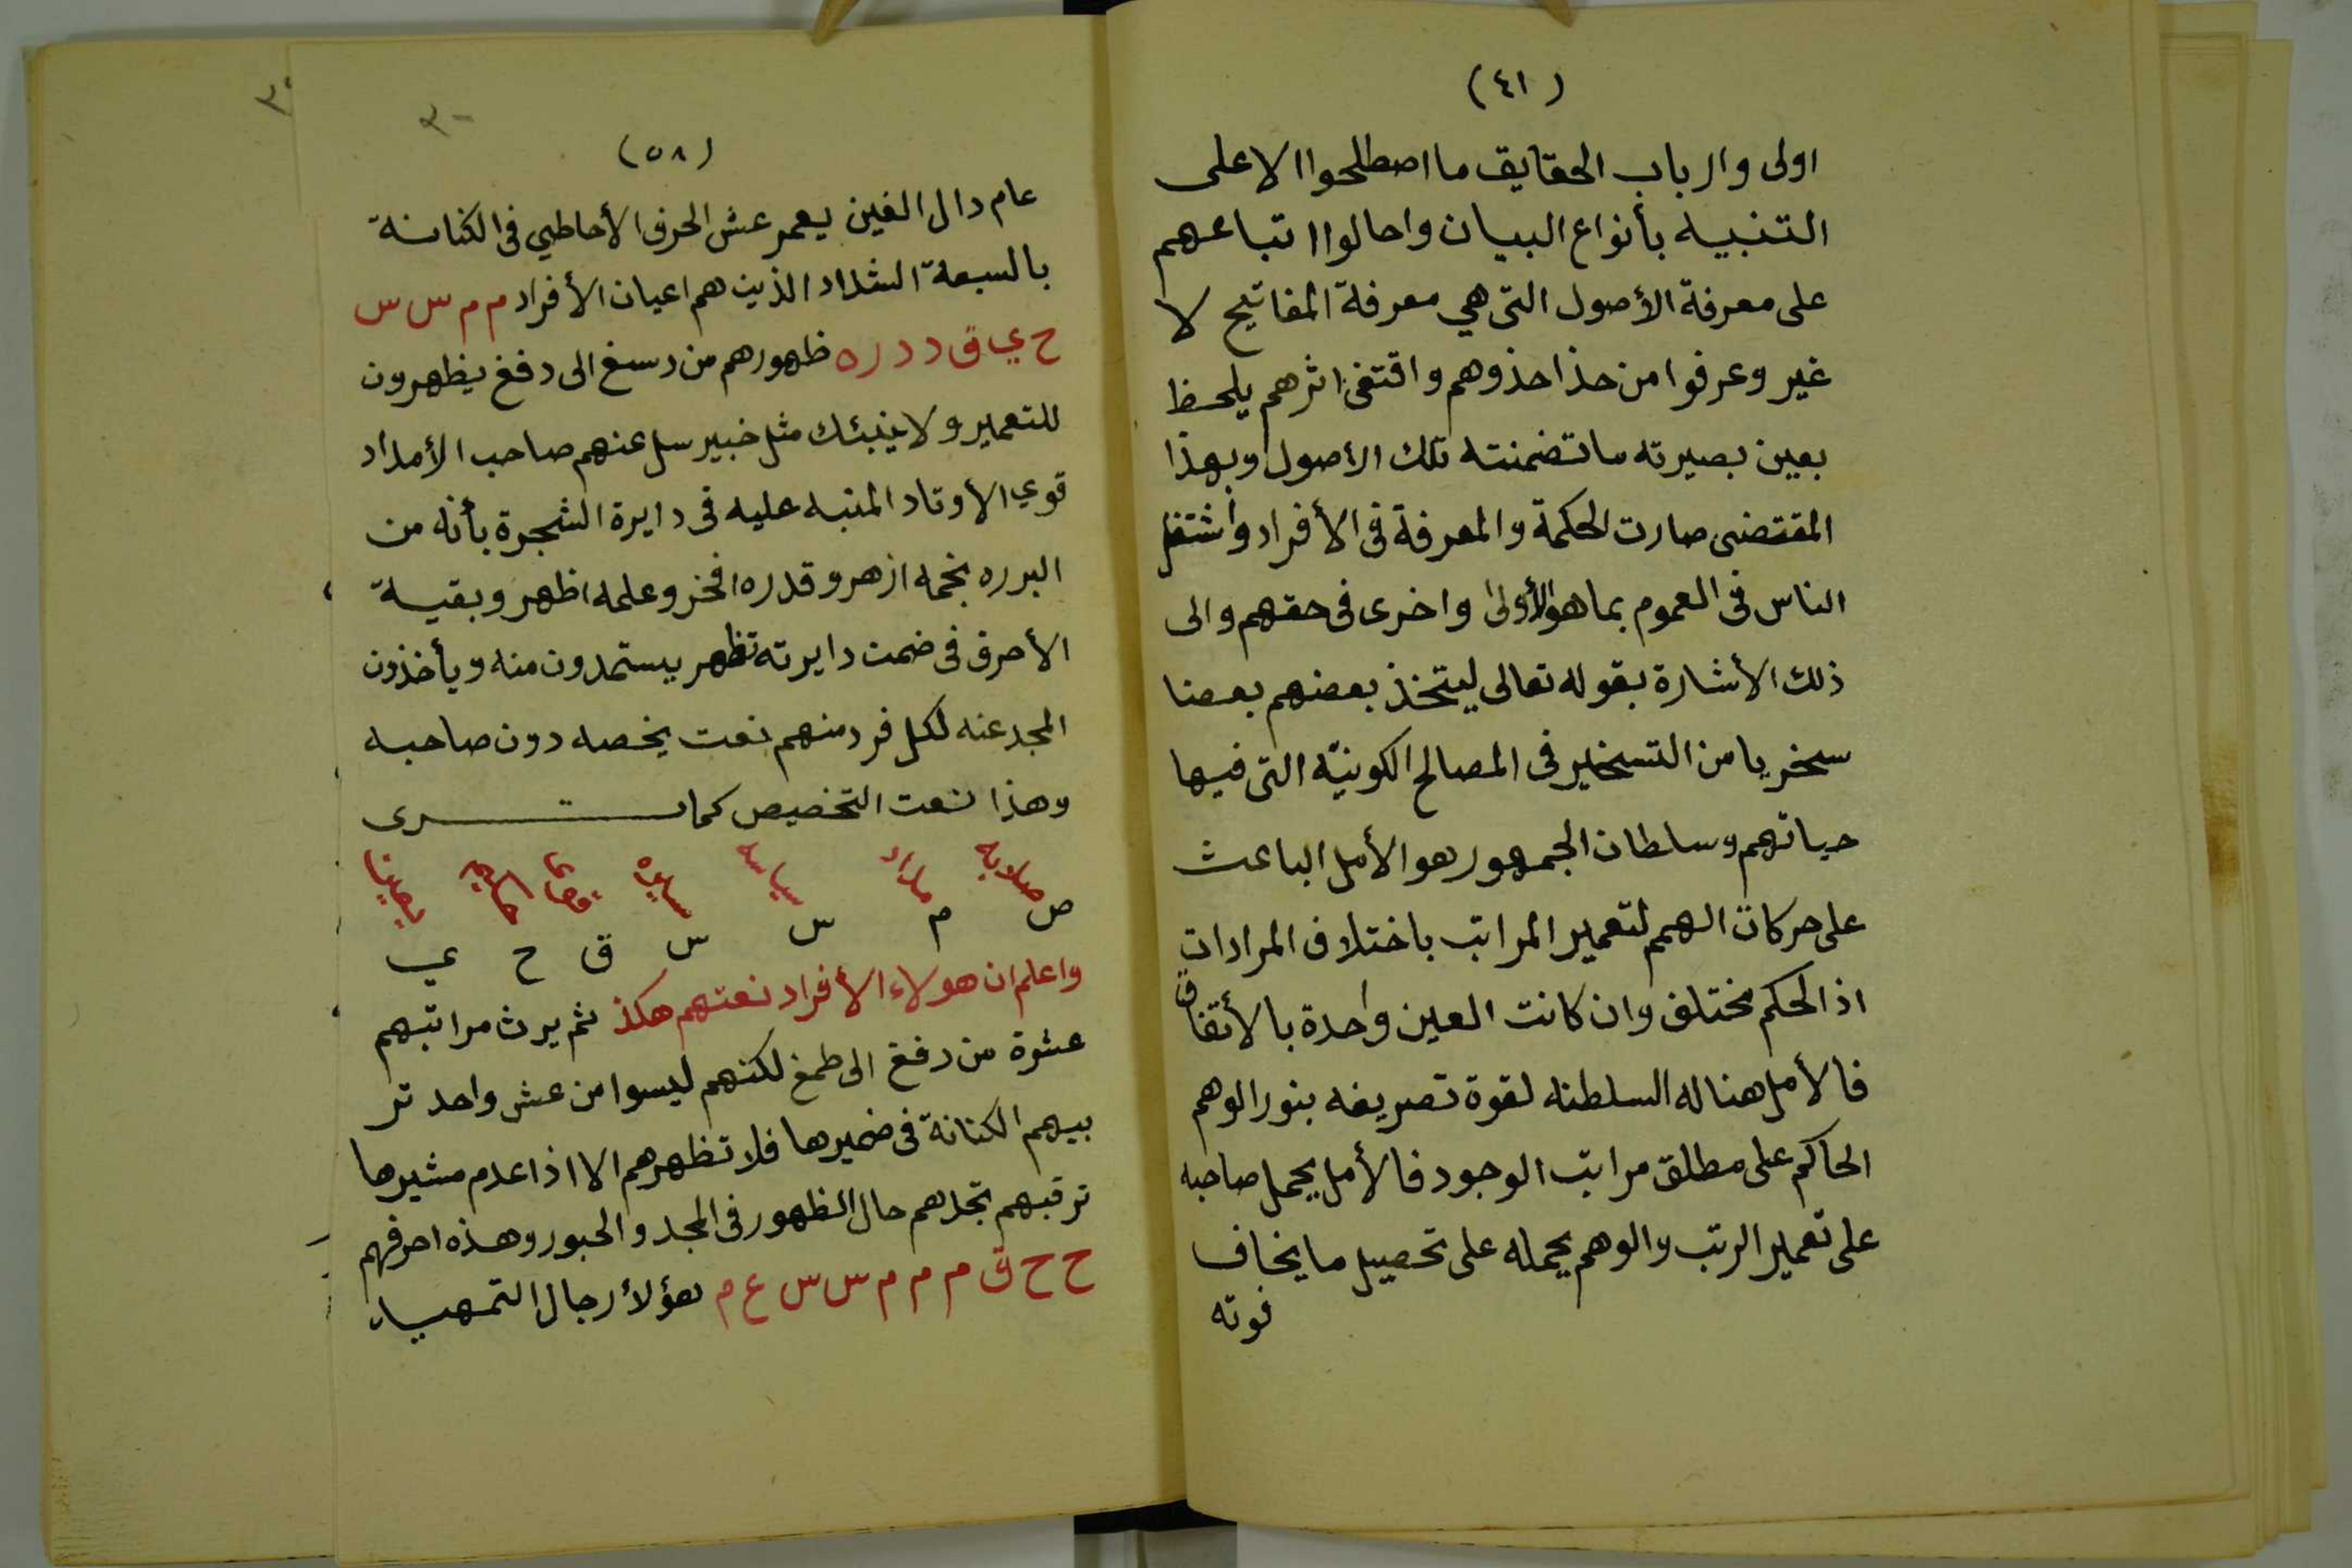 (٤١)
اولى وارباب الحقايق ما اصطلحوا الا على
التنبيه بأنواع البيان واحالوا اتباعهم
على معرفة الأصول التى هي معرفة المفاتيح لا
غير وعرفوا من حذا حذوهم واقتفى اثرهم يلحظ
بعين بصيرته ما تضمنته تلك الأصول وبهذا
المقتضى صارت الحكمة والمعرفة فى الأفراد واشتغل
الناس فى العموم بما هو الأولى واخرى فى حقهم والى
ذلك الأشارة بقوله تعالى ليتخذ بعضهم بعضا
سخريا من التسخير فى المصالح الكونيّه التى فيها
حياتهم وسلطان الجمهور هو الأمل الباعث
على حركات الهمم لتعمير المراتب باختلاف المرادات
اذ الحكم مختلف وان كانت العين واحدة بالأتفاق
فالأمل هنا له السلطنه لقوة تصريفه بنور الوهم
الحاكم على مطلق مراتب الوجود فالأمل يحمل صاحبه
على تعمير الرتب والوهم يحمله على تحصيل ما يخاف
فوته
(٥٨)
عام دال الغين يعمر عش الحرف الأحاطي فى الكنانة
بالسبعة الشداد الذين هم اعيان الأفراد م م س س
ح ي ق د د ر ه ظهورهم من دسغ الى دفغ يظهرون
للتعمير ولا ينبئك مثل خبير سل عنهم صاحب الأمداد
قوي الأوتاد المنبه عليه فى دايرة الشجرة بأنه من
البرره نجمه ازهر وقدره افخر وعلمه اظهر وبقية
الأحرف فى ضمن دايرته تظهر يستمدون منه ويأخذون
المجد عنه لكل فرد منهم نعت يخصه دون صاحبه
وهذا نعت التخصيص كما ترى
ص م س س ق ح ي
واعلم ان هولاء الأفراد نعتهم هكذ ثم يرث مراتبهم
عشرة من دفغ الى طمغ لكنهم ليسوا من عش واحد تر
بيهم الكنانة فى ضميرها فلا تظهرهم الا اذا عدم مشيرها
ترقبهم تجدهم حال الظهور فى المجد والحبور وهذه احرفهم
ح ح ق م م م س س ع م هؤلأ رجال التمهيد